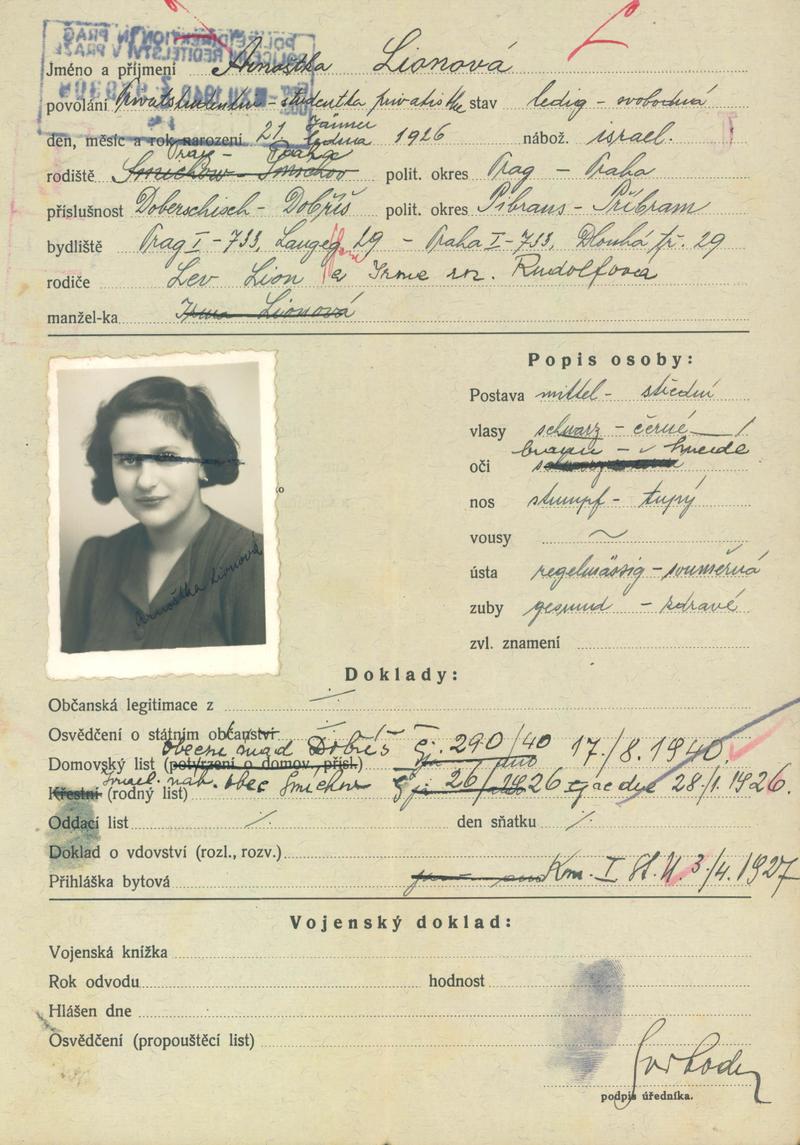 Jméno a příjmení Arnoštka Lionová
povolání Privatstudentin - studentka privatistka stav ledig - svobodná
den, měsíc a rok narození 21. Jänner ledna 1926 nábož. israel.
Prag - Praha
rodiště Smichow - Smíchov polit. okres Prag - Praha
příslušnost Doberschisch - Dobříš polit. okres Pibrans - Příbram
bydliště Prag I - 733, Langeg. 29 - Praha I - 733, Dlouhá tř. 29
rodiče Lev Lion a Irma roz. Rudolfova
manžel-ka Irma Lionová
Popis osoby:
Postava mittel - střední
vlasy schwarz - černé
braun - hnědé
oči
nos stumpf - tupý
vousy ~
ústa regelmässig - souměrná
zuby gesund - zdravé
zvl. znamení
Arnoštka Lionová
Doklady:
Občanská legitimace z
Osvědčení o státním občanství
obecní úřad Dobříš čj. 290/40 17./8. 1940.
Domovský list (potvrzení o domov. přísl.)
Israel. náb. obec Smíchov 26/1926 28./1. 1926.
Křestní (rodný list)
Oddací list ·/. den sňatku ·/.
Doklad o vdovství (rozl., rozv.)
Přihláška bytová Kom. I 3/4. 1927
Vojenský doklad:
Vojenská knížka
Rok odvodu hodnost
Hlášen dne
Osvědčení (propouštěcí list)
podpis úředníka.